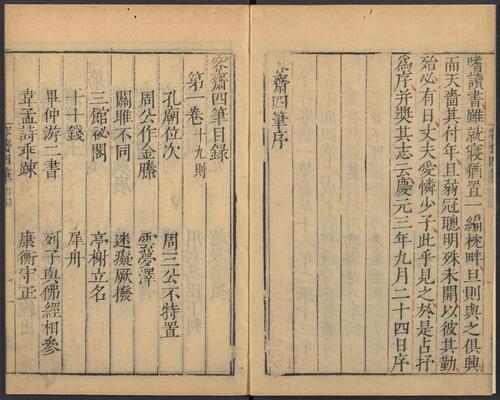 嗜讀書雖就寢猶置一編枕畔旦則與之俱興
而天嗇其付年且弱冠聰明殊未開以彼其勤
殆必有日丈夫愛憐少子此乎見之於是占抒
為序并奬其志云慶元三年九月二十四日序
容齋四筆序
容齋四筆目錄
第一卷十九則
孔廟位次 周三公不特置
周公作金縢 雲夢澤
關雎不同 迷癡厥撥
三館祕閣 亭榭立名
十十錢 犀舟
畢仲游二書 列子與佛經相參
韋孟詩乖疎 康衡守正